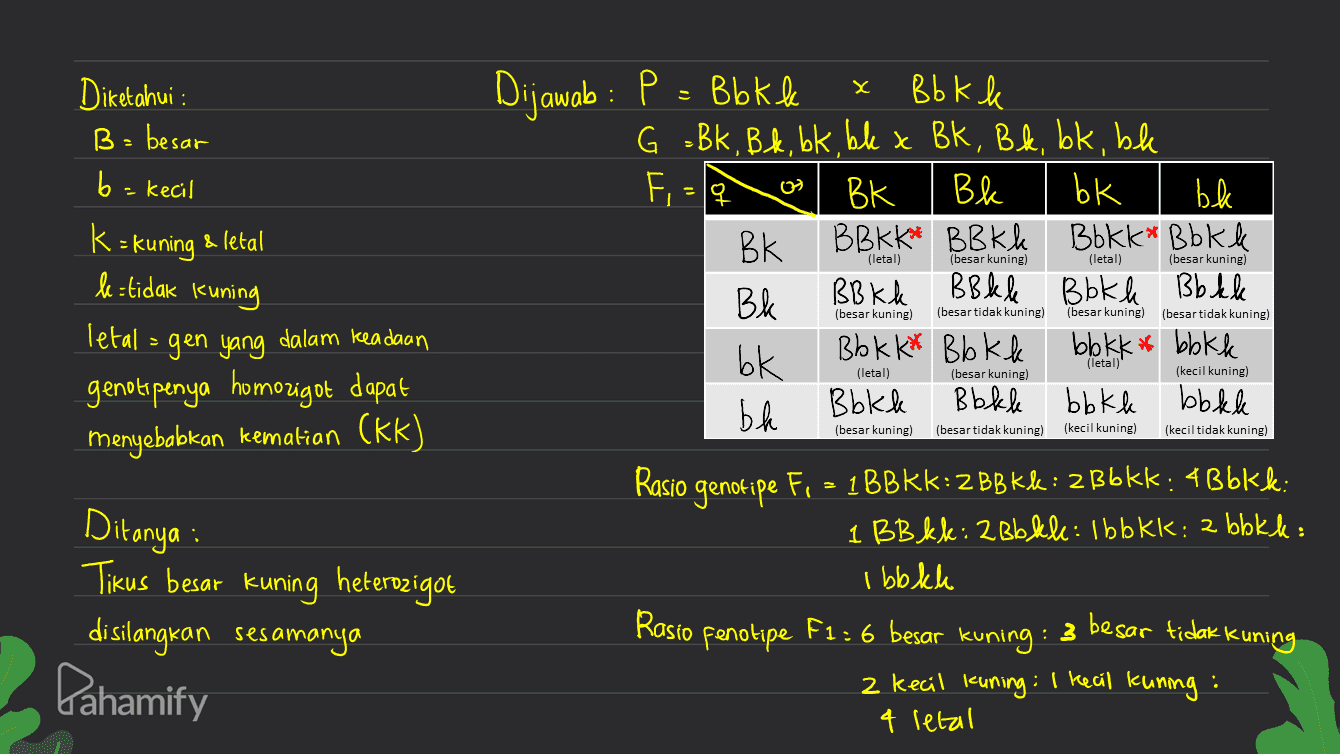 Diketahui :
B = besar
b = kecil
K = kuning & letal
k = tidak kuning
letal = gen yang dalam keadaan
genotipenya homozigot dapat
menyebabkan kematian (KK)
Ditanya :
Tikus besar kuning heterozigot
disilangkan sesamanya
Dijawab : P = BbKk x BbKk
G = BK, Bk, bK, bk x BK, Bk, bK, bk
F1 =
♀ ♂ BK Bk bK bk
BK BBKK* BBKk BbKK* BbKk
(letal) (besar kuning) (letal) (besar kuning)
Bk BBKk BBkk BbKk Bbkk
(besar kuning) (besar tidak kuning) (besar kuning) (besar tidak kuning)
bK BbKK* BbKk bbKK* bbKk
(letal) (besar kuning) (letal) (kecil kuning)
bk BbKk Bbkk bbKk bbkk
(besar kuning) (besar tidak kuning) (kecil kuning) (kecil tidak kuning)
Rasio genotipe F1 = 1 BBKK : 2 BBKk : 2 BbKK : 4 BbKk :
1 BBkk : 2 Bbkk : 1 bbKK : 2 bbKk :
1 bbkk
Rasio fenotipe F1 : 6 besar kuning : 3 besar tidak kuning
2 kecil kuning : 1 kecil kuning :
4 letal
Pahamify